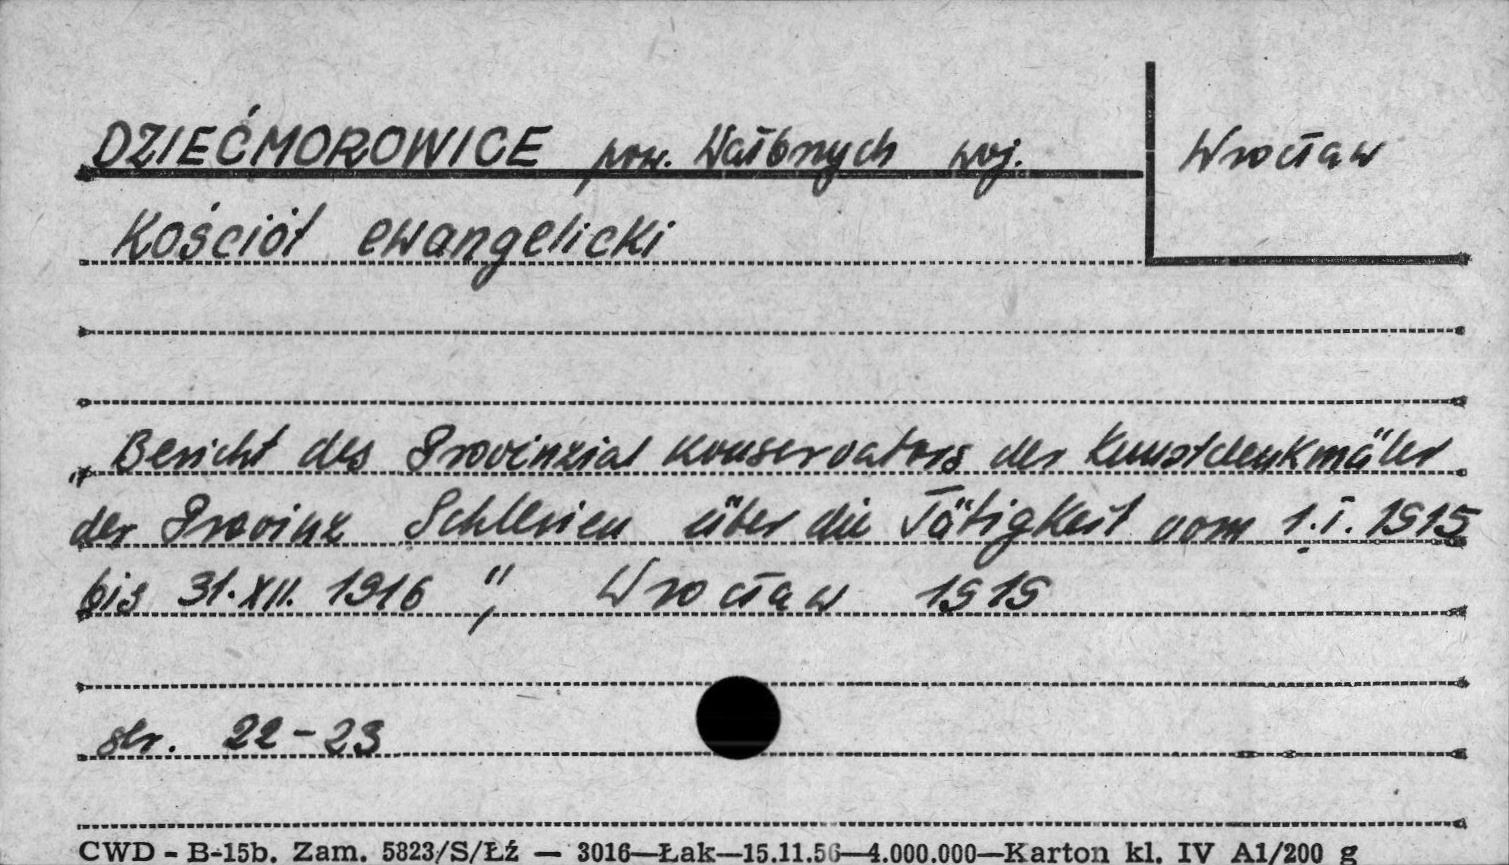 DZIEĆMOROWICE pow. Wałbrzych woj. Wrocław
Kościół ewangelicki
„Bericht des Provinzial konservators der Kunstdenkmäler
der Provinz Schlesien über die Tätigkeit vom 1.I.1915
bis 31.XII. 1916", Wrocław 1919
str. 22-23
CWD - B-15b. Zam. 5823/S/Łź — 3016—Łak—15.11.56—4.000.000—Karton kl. IV A1/200 g